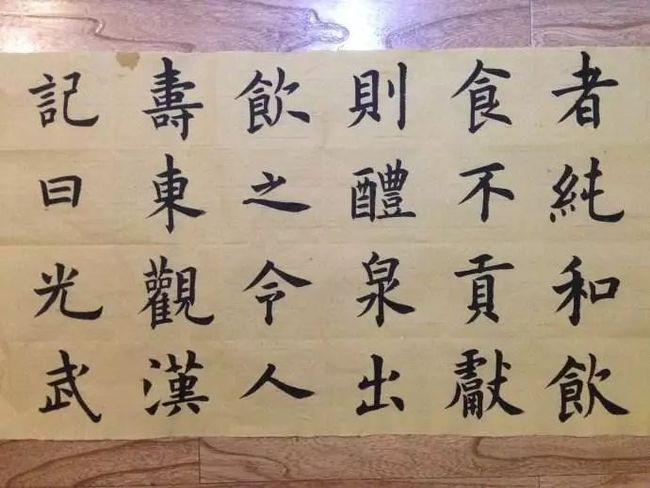 者純和飲
食不貢獻
則醴泉出
飲之令人
壽東觀漢
記曰光武